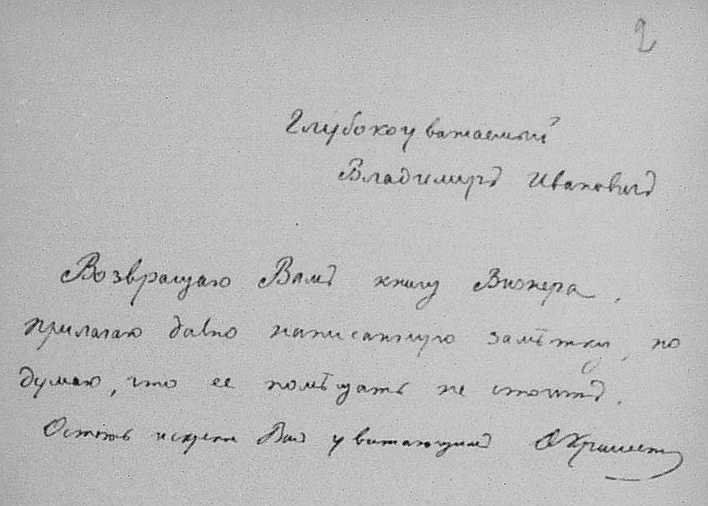 2
Глубокоуважаемый
Владимиръ Ивановичъ
Возвращаю Вамъ книгу Вионера,
прилагаю давно написанную замѣтку, но
думаю, что ее помѣщать не стоитъ.
Остаюсь искренне Васъ уважающимъ